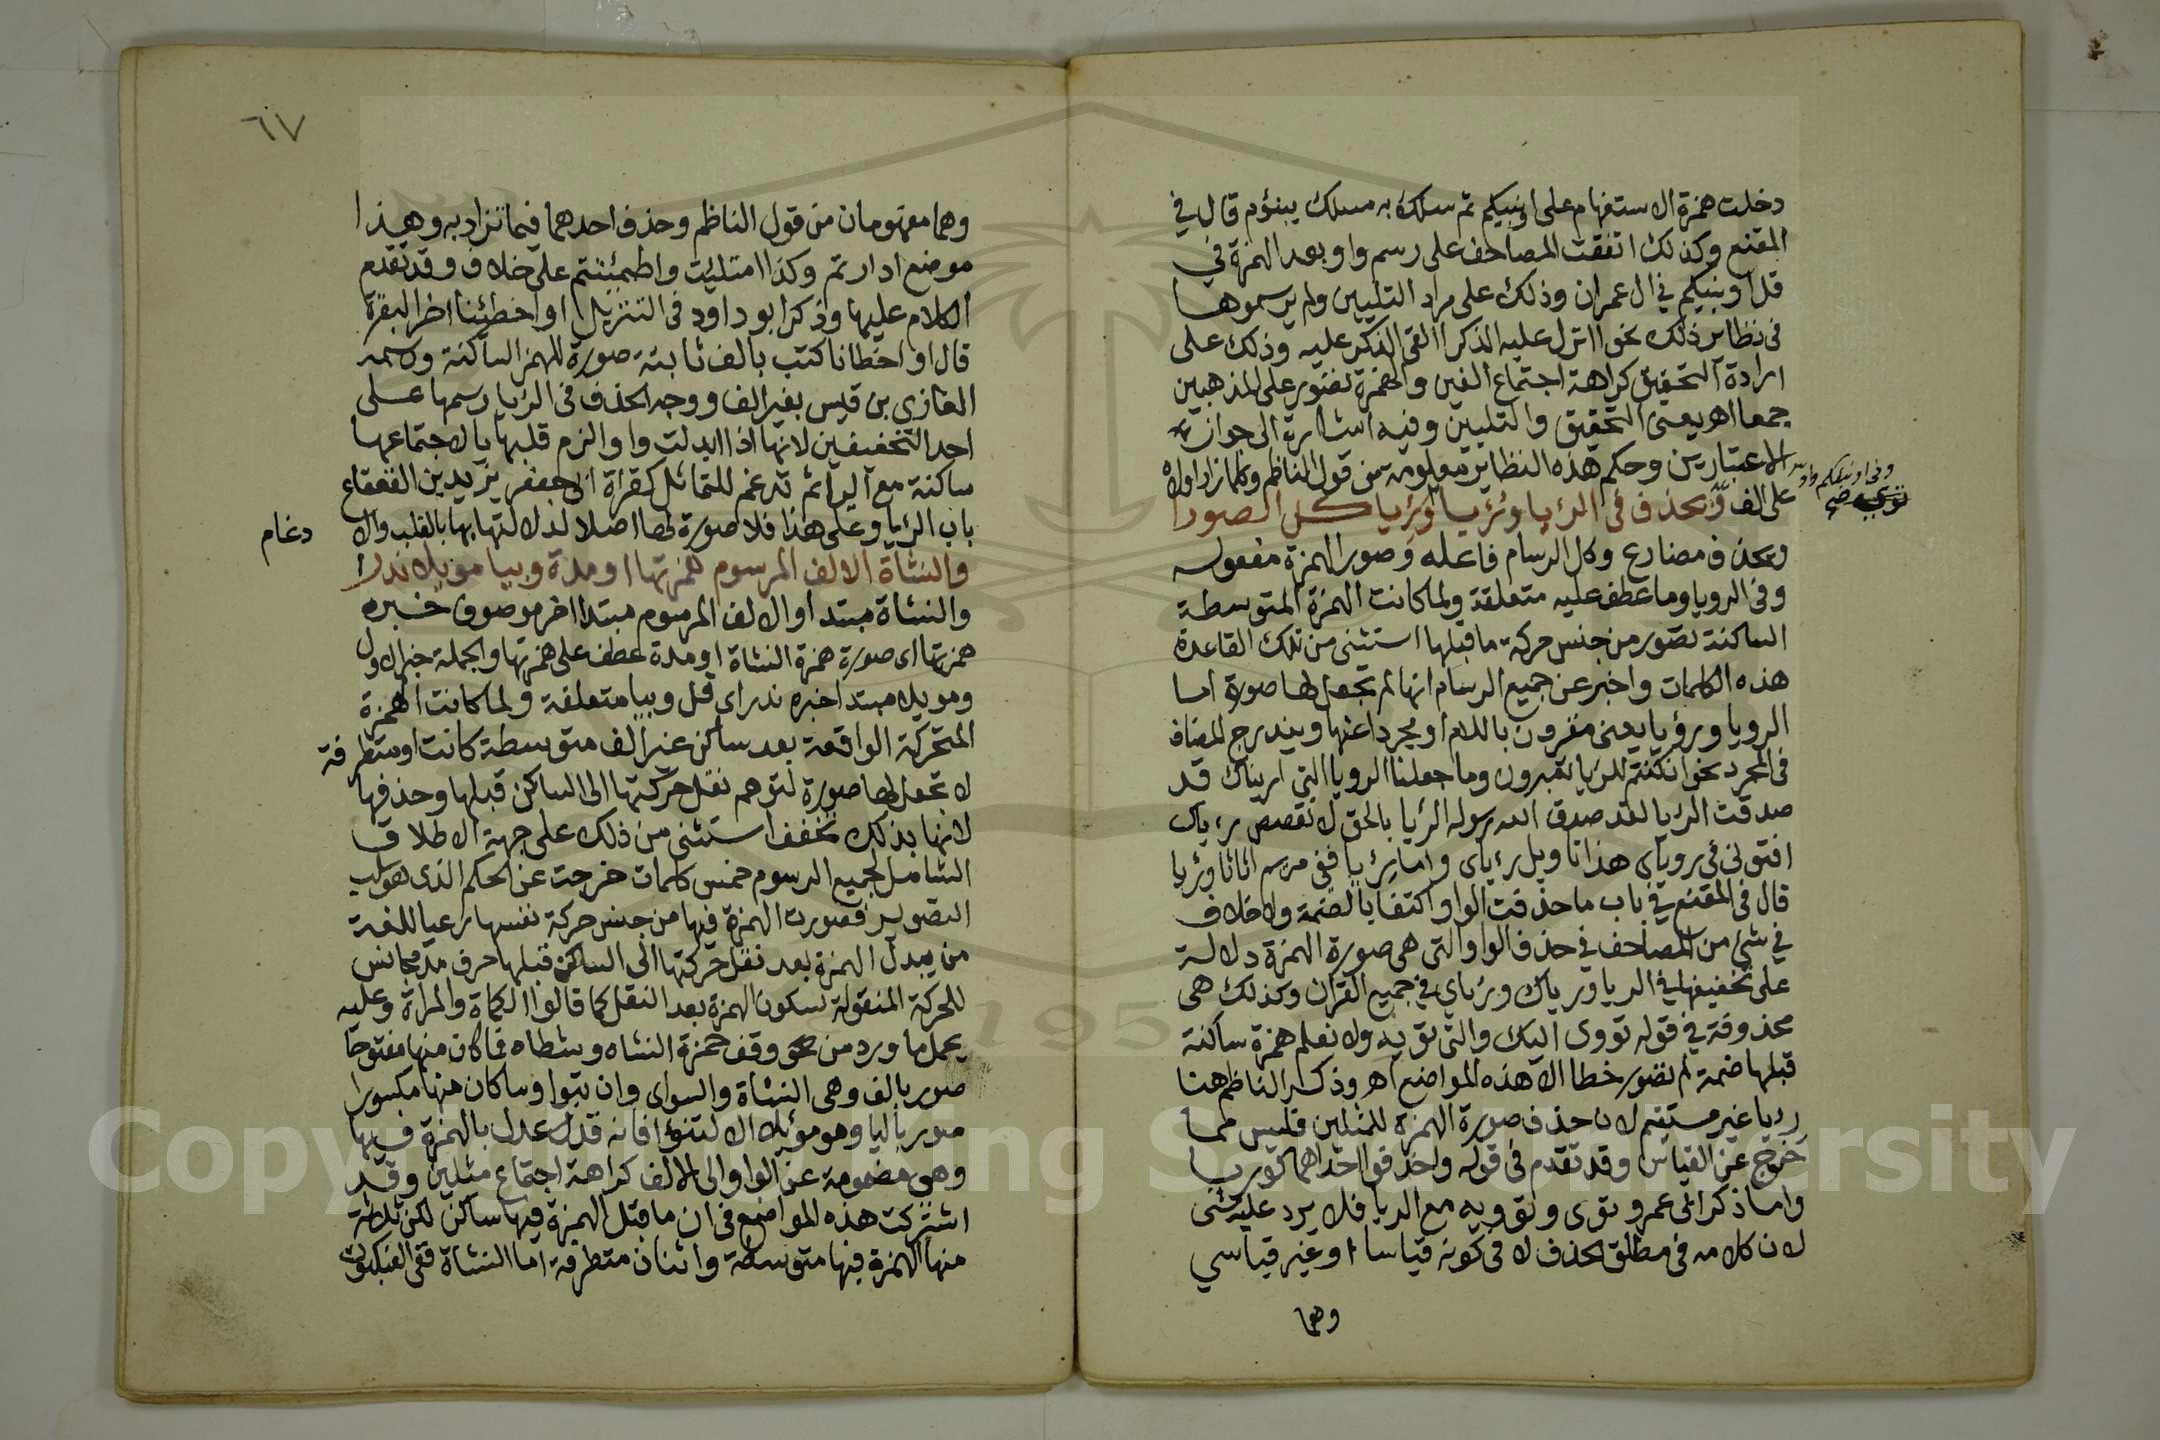 دخلت همزة الاستفهام على اونبيكم ثم سلك به مسلك يبنؤم قال في
المقنع وكذلك اتفقت المصاحف على رسم واو بعد الهمزة في
قل اونبيكم في ال عمران وذلك على مراد التليين ولم يرسموها
في نظاير ذلك نحو اانزل عليه الذكر االقى الذكر عليه وذلك على
ارادة التحقيق كراهة اجتماع الفين والهمزة تصور على المذهبين
جمعا اهـ يعنى التحقيق والتليين وفيه اشارة الى جواز
الاعتبارين وحكم هذه النظاير معلومة من قول الناظم وكلما زاد اولاه
على الف وحذف في الرءيا ورءيا ورئيا كل الصورا
وبحذف مضارع وكل الرسام فاعله وصور الهمزة مفعوله
وفى الرويا وما عطف عليه متعلقة ولما كانت الهمزة المتوسطة
الساكنة تصور من جنس حركة ما قبلها استثنى من تلك القاعدة
هذه الكلمات واخبر عن جميع الرسام انها لم يجعل لها صورة اما
الرويا ورؤيا يعنى مقرون باللام او مجردا عنها ويندرج المضاف
فى المجرد نحو ان كنتم للرءيا تعبرون وما جعلنا الرويا التي اريناك قد
صدقت الرءيا لقد صدق الله رسوله الرءيا بالحق لا تقصص رءياك
افتونى في روياى هذا تاويل رءياى واما رئيا ففى مريم اثاثا ورئيا
قال فى المقنع في باب ما حذفت الواو اكتفا بالضمة ولا خلاف
في شئ من المصاحف في حذف الواو التى هى صورة الهمزة دلالة
على تخفيفها في الرءيا ورءياك ورءياى في جميع القران وكذلك هى
محذوفة في قوله تووى اليك والتى تؤيه ولا نعلم همزة ساكنة
قبلها ضمة لم تصور خطا الا هذه المواضع اهـ وذكر الناظم هنا
رءيا غير مستقيم لان حذف صورة الهمزة للمثلين فليس مما
خرج عن القياس وقد تقدم في قوله واحذفوا احداهما كورئيا
واما ذكر ابى عمرو تؤى وتؤويه مع الرءيا فلا يرد عليه شئ
لان كلامه فى مطلق الحذف لا فى كونه قياسا او غير قياسي
وهما
وفى اونبيكم واو
٦٧
وهما مفهومان من قول الناظم وحذف احدهما فيما تزاد به وهذا
موضع ادارتم وكذا امتليت واطمئنتم على خلاف وقد تقدم
الكلام عليها وذكر ابو داود فى التنزيل او اخطئنا اخر البقرة
قال او اخطانا كتب بالف ثابتة صورة للهمز الساكنة ورسمه
الغازى بن قيس بغير الف ووجه الحذف فى الرءيا رسمها على
احد التخفيفين لانها اذا ابدلت واوا لزم قلبها يا لاجتماعها
ساكنة مع اليا ثم تدغم للتماثل كقراة ابى جعفر يزيد بن القعقاع
باب الرءيا وعلى هذا فلا صورة لها اصلا لذلك لذهابها بالقلب والا
دغام
والنشاة الالف المرسوم همزتها او مدة وبيا موئلا ندرا
والنشاة مبتدا والالف المرسوم مبتدا اخر موصوف خبره
همزتها اى صورة همزة النشاة او مدة عطف على همزتها والجملة خبر الاول
وموئلا مبتدا خبره ندر اى قل وبيا متعلقة ولما كانت الهمزة
المتحركة الواقعة بعد ساكن غير الف متوسطة كانت او متطرفة
لا تجعل لها صورة لتوهم نقل حركتها الى الساكن قبلها وحذفها
لانها بذلك تخفف استثنى من ذلك على جهة الاطلاق
الشامل لجميع الرسوم خمس كلمات خرجت عن الحكم الذى هو سلب
التصوير فصورت الهمزة فيها من جنس حركة نفسها رعيا للغة
من يبدل الهمزة بعد نقل حركتها الى الساكن قبلها حرف مد مجانس
للحركة المنقولة لسكون الهمزة بعد النقل كما قالوا الكماة والمراة وعليه
يحمل ما ورد من نحو وقف حمزة النشاه وشطاه فما كان منها مفتوحا
صور بالف وهى النشاة والسواى وان تبوا وما كان منها مكسورا
صور باليا وهو موئلا الا لتنوا فانه قد عدل بالهمزة فيها
وهى مضمومة عن الواو الى الالف كراهة اجتماع مثلين وقد
اشتركت هذه المواضع فى ان ما قبل الهمزة فيها ساكن لكن ثلاثة
منها الهمزة فيها متوسطة واثنان متطرفة اما النشاة ففى العنكبوت
Copyright King Saud University